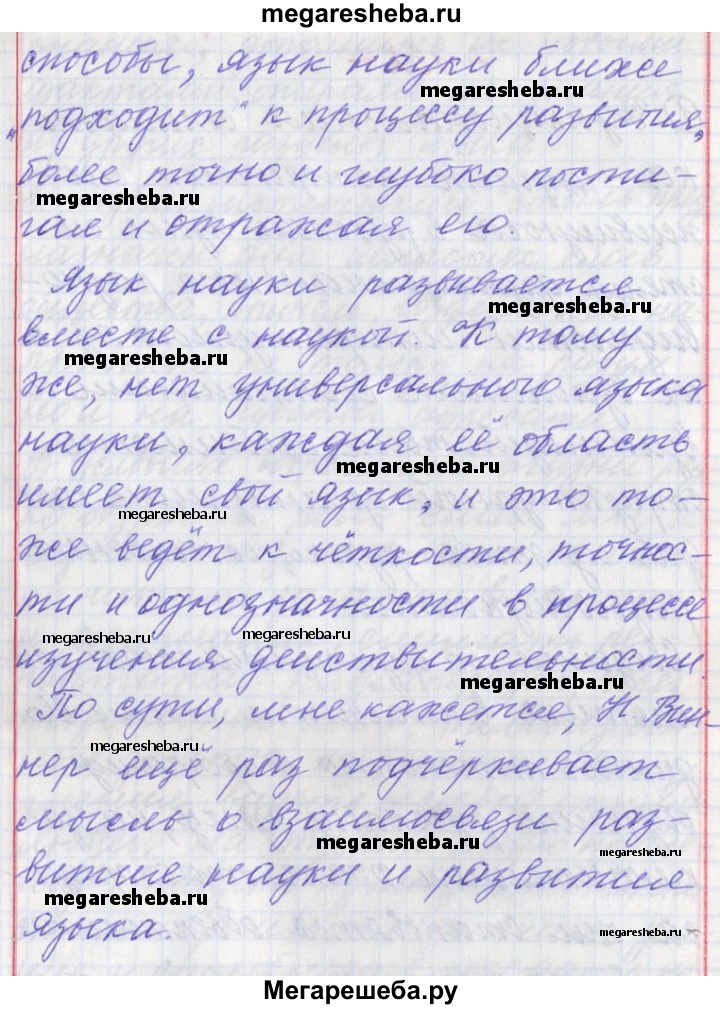 megaresheba.ru
способы, язык науки ближе
megaresheba.ru
„подходит" к процессу развития,
более точно и глубоко пости-
megaresheba.ru
гая и отражая его.
Язык науки развивается
megaresheba.ru
вместе с наукой. К тому
megaresheba.ru
же, нет универсального языка
науки, каждая её область
megaresheba.ru
имеет свой язык, и это то-
megaresheba.ru
же ведёт к чёткости, точнос-
ти и однозначности в процессе
megaresheba.ru megaresheba.ru
изучения действительности.
megaresheba.ru
По сути, мне кажется, Н. Вин-
megaresheba.ru
нер ещё раз подчёркивает
мысль о взаимосвязи раз-
megaresheba.ru megaresheba.ru
вития науки и развития
megaresheba.ru
языка.
megaresheba.ru
Мегарешеба.ру